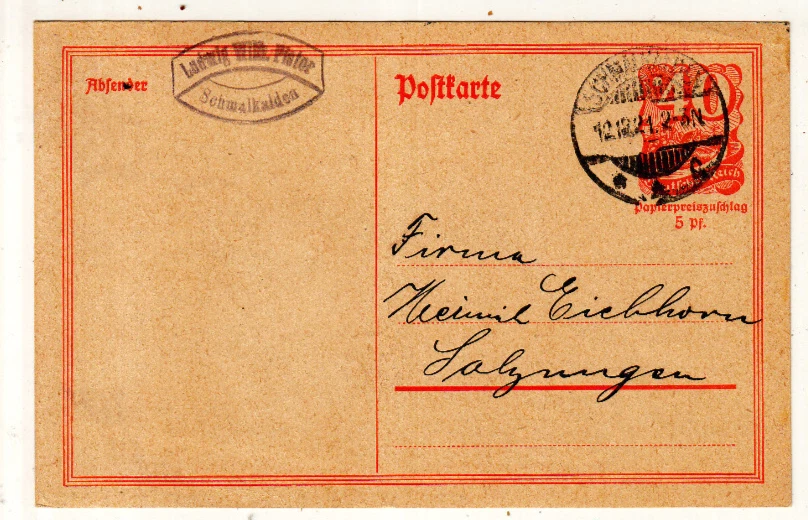 Absender
Ludwig Wilh. Pistor
Schmalkalden
Postkarte
12.12.21. 2-3N
40
Papierpreiszuschlag
5 Pf.
Firma
Heinrich Eichhorn
Salzungen